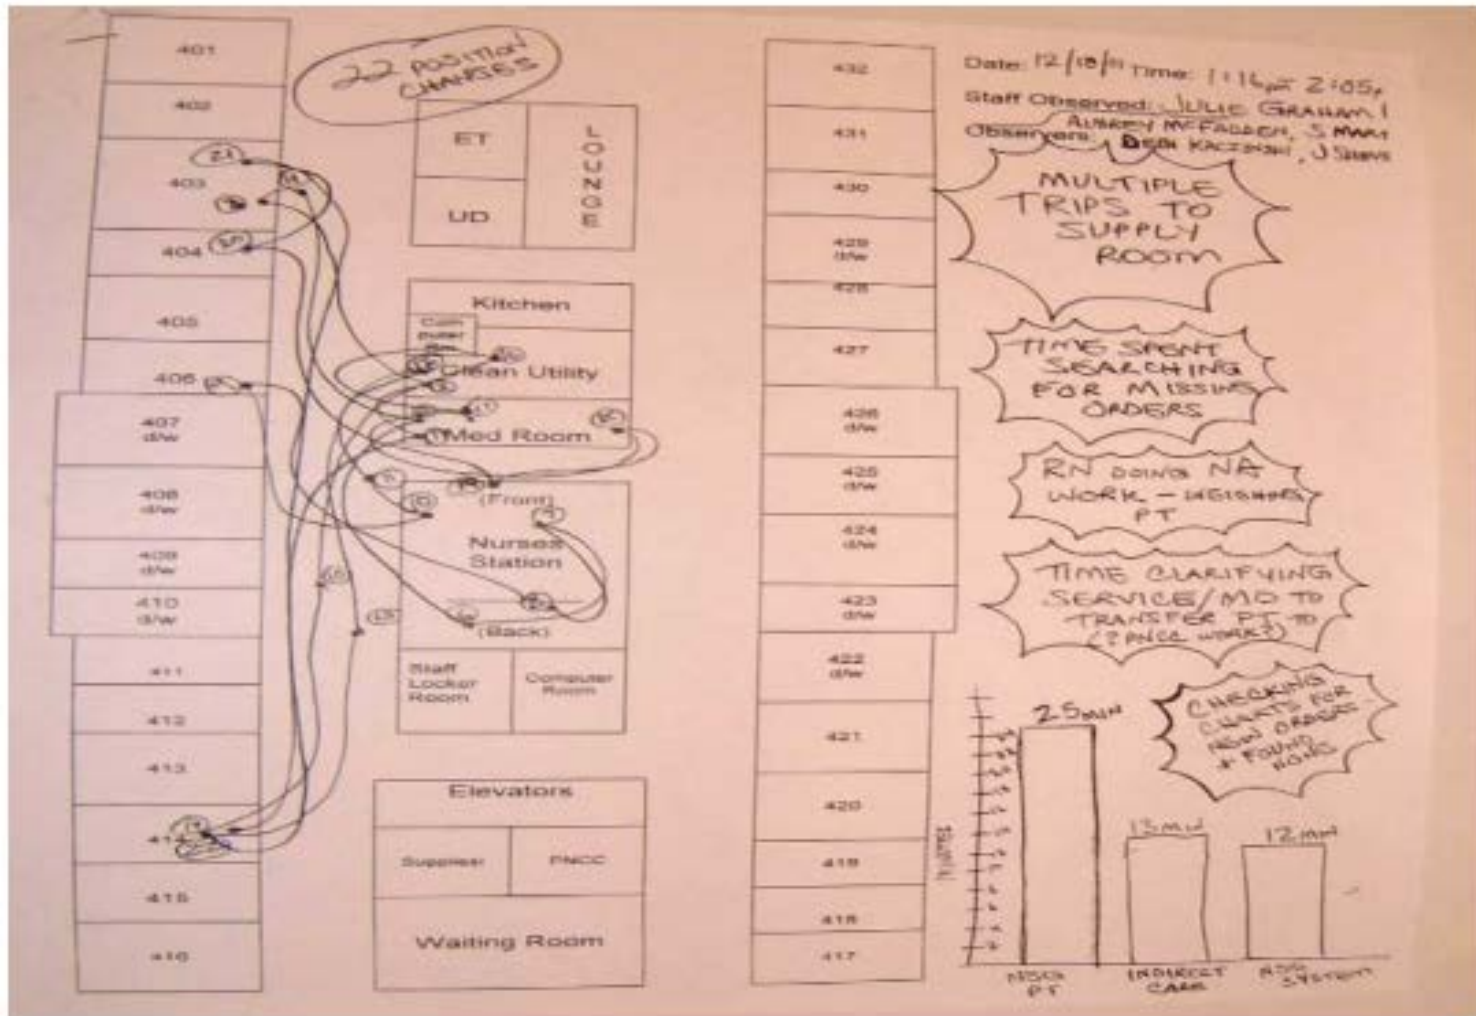 401
402
403
404
405
406
407
d/w
408
d/w
409
d/w
410
d/w
411
412
413
414
415
416
22 POSITION
CHANGES
ET
UD
LOUNGE
Kitchen
Clean Utility
Med Room
(Front)
Nurses
Station
(Back)
Staff
Locker
Room
Computer
Room
Elevators
Supplies/
PNCC
Waiting Room
432
431
430
429
d/w
428
427
426
d/w
425
d/w
424
d/w
423
d/w
422
d/w
421
420
419
418
417
Date: 12/18/ Time: 1:16 pm 2:05p
Staff Observed: JULIE GRAHAM
AUBREY MCFADDEN, S MART
Observers: DEBI KACZINSKI, J
MULTIPLE
TRIPS TO
SUPPLY
ROOM
TIME SPENT
SEARCHING
FOR MISSING
ORDERS
RN DOING NA
WORK - WEIGHING
PT
TIME CLARIFYING
SERVICE/MD TO
TRANSFER PT TO
(? PNCC WORK?)
CHECKING
CHARTS FOR
NEW ORDERS
+ FOUND
NONE
25 MIN
13 MIN
12 MIN
NSG
PT
INDIRECT
CARE
NSG
SYSTEM